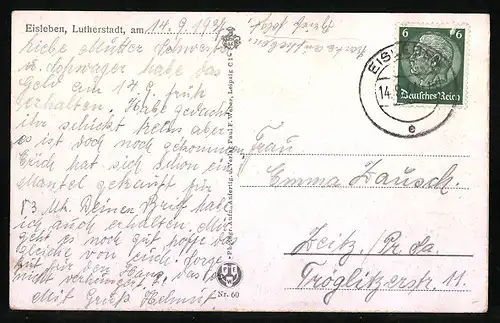 Eisleben, Lutherstadt, am 14.9.1934
Karte aufheben.
Brief folgt.
Liebe Mutter Schwester
u. Schwager habe das
Geld am 14.9. früh
erhalten. Habe gedacht
ihr schickt nichts aber
es ist doch noch gekommen.
Erich hat sich schon ein
Mantel gekauft für
53 Mk. Deinen Brief hab
ich auch erhalten. Mir
geht es noch gut hoffe das
Gleiche von euch. Sorge
gut für den Hans, das
nicht verkümmert.
Mit Gruß Helmut
6 6
Deutsches Reich
EISLEBEN
14.
e
Frau
Emma Zausch.
Zeitz, Pr. Sa.
Tröglitzerstr 11.
Verlag Paul F. Weber, Leipzig C 1
Nr. 60